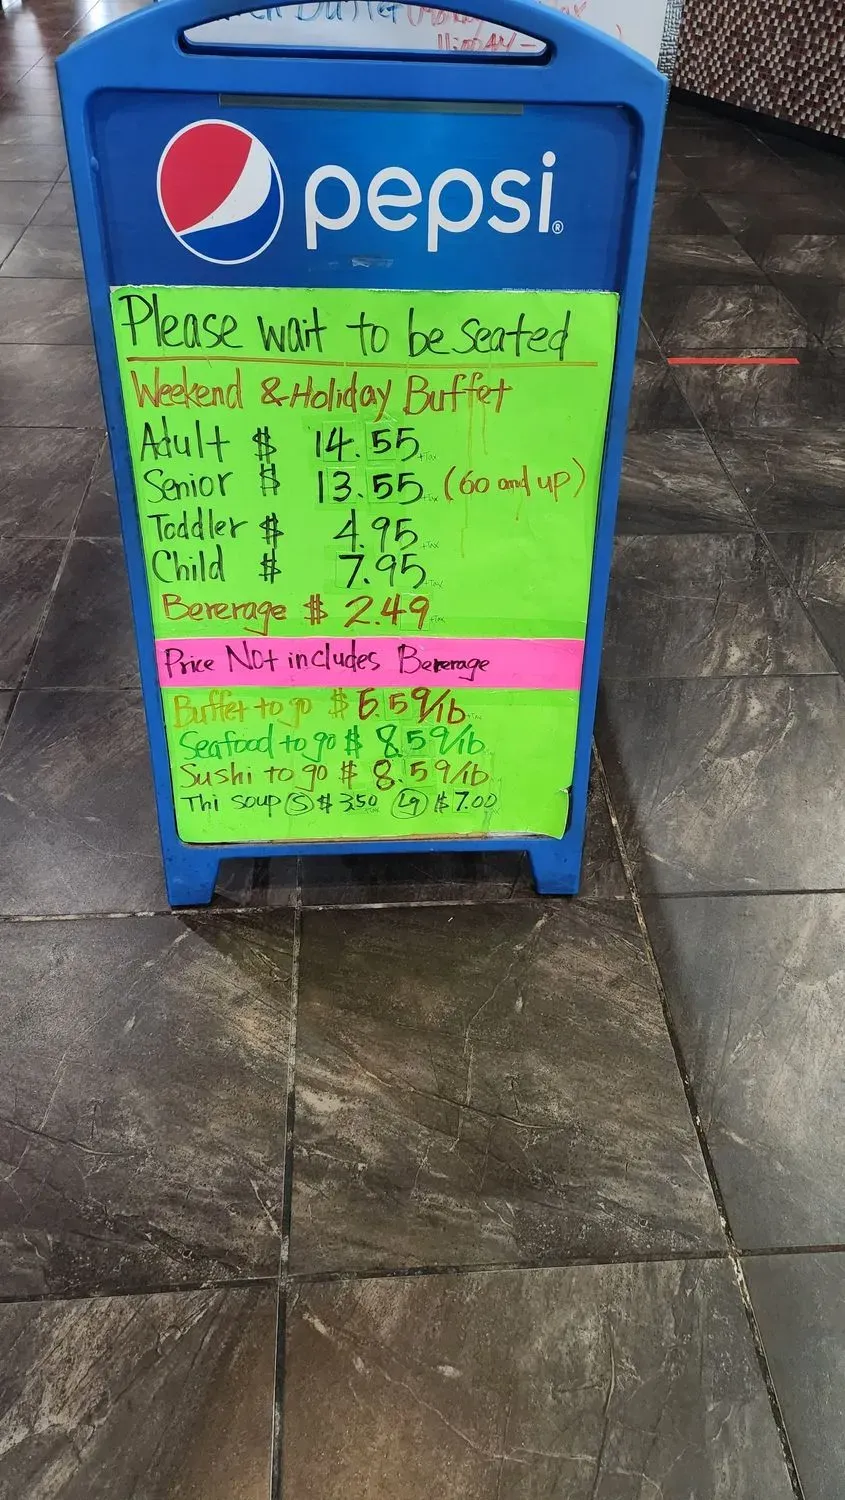 pepsi®
Please wait to be seated
Weekend & Holiday Buffet
Adult $ 14.55 +Tax
Senior $ 13.55 +Tax (60 and up)
Toddler $ 4.95 +Tax
Child $ 7.95 +Tax
Bererage $ 2.49 +Tax
Price Not includes Bererage
Buffet to go $ 6.59/lb
Seafood to go $ 8.59/lb
Sushi to go $ 8.59/lb
Thi soup S $ 3.50 Lg $ 7.00